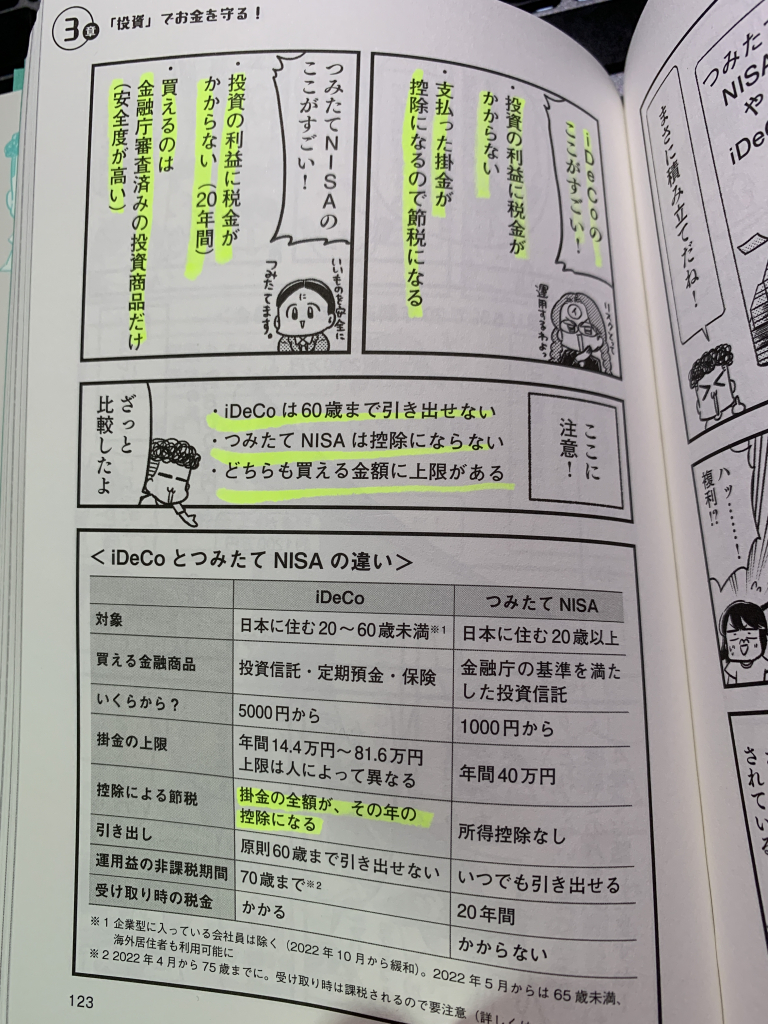 3章 「投資」でお金を守る！
iDeCoの
ここがすごい！
・投資の利益に税金が
かからない
・支払った掛金が
控除になるので節税になる
リスクとって
運用するわよっ
つみたてNISAの
ここがすごい！
・投資の利益に税金が
かからない（20年間）
・買えるのは
金融庁審査済みの投資商品だけ
（安全度が高い）
いいものを安全に
つみたてます。
ここに
注意！
・iDeCoは60歳まで引き出せない
・つみたてNISAは控除にならない
・どちらも買える金額に上限がある
ざっと
比較したよ
＜iDeCoとつみたてNISAの違い＞
iDeCo つみたてNISA
対象 日本に住む20〜60歳未満※1 日本に住む20歳以上
買える金融商品 投資信託・定期預金・保険 金融庁の基準を満た
した投資信託
いくらから？ 5000円から 1000円から
掛金の上限 年間14.4万円〜81.6万円
上限は人によって異なる 年間40万円
控除による節税 掛金の全額が、その年の
控除になる 所得控除なし
引き出し 原則60歳まで引き出せない いつでも引き出せる
運用益の非課税期間 70歳まで※2 20年間
受け取り時の税金 かかる かからない
※1 企業型に入っている会社員は除く（2022年10月から緩和）。2022年5月からは65歳未満、
海外居住者も利用可能に
※2 2022年4月から75歳までに。受け取り時は課税されるので要注意（詳しく
123
つみた
NISA
や
iDeC
まさに積み立てだね！
ハッ……！
複利!?
されている